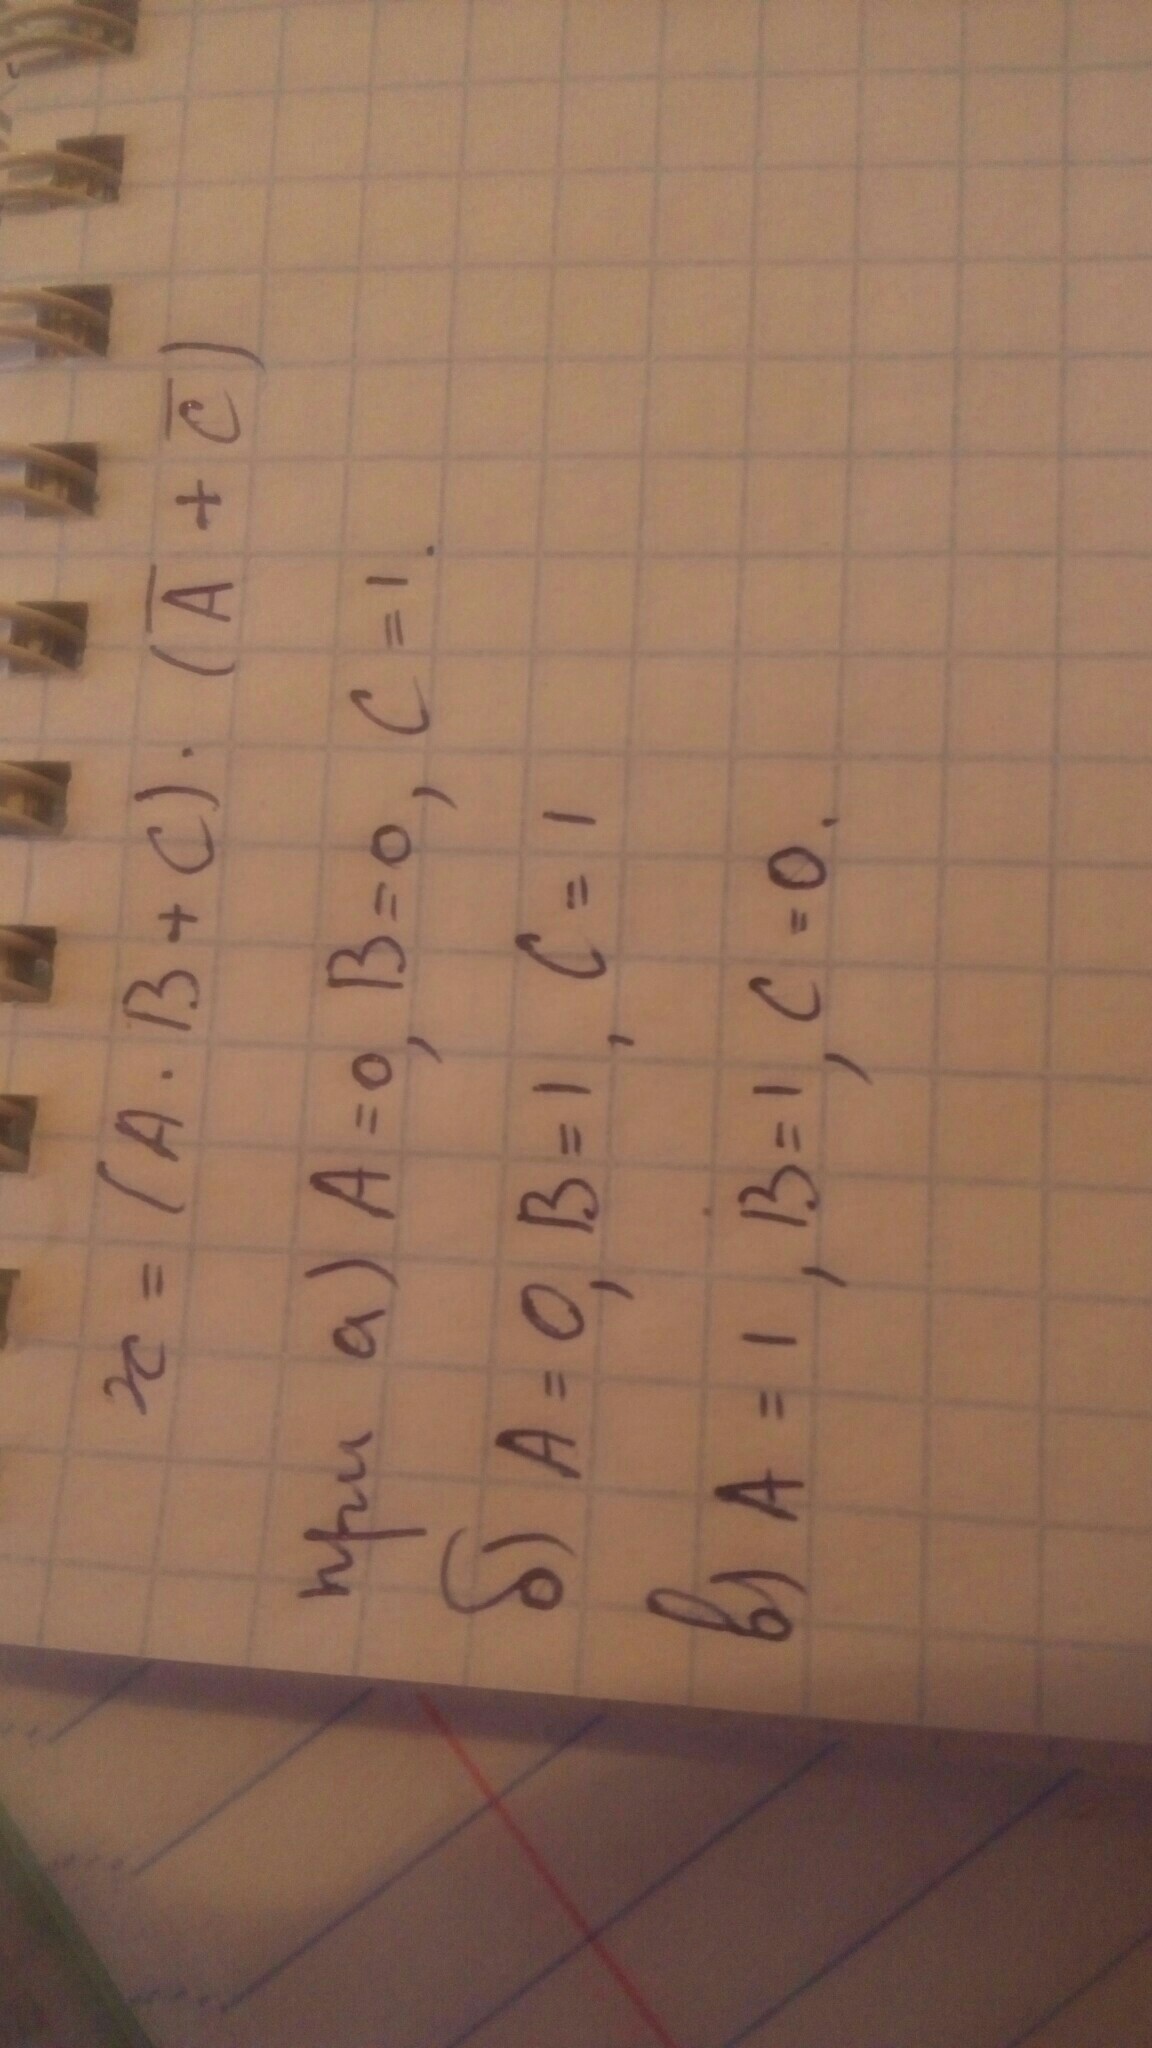 x = (A · B + C) · (A̅ + C̅)
при а) A = 0, B = 0, C = 1.
б) A = 0, B = 1, C = 1
в) A = 1, B = 1, C = 0.